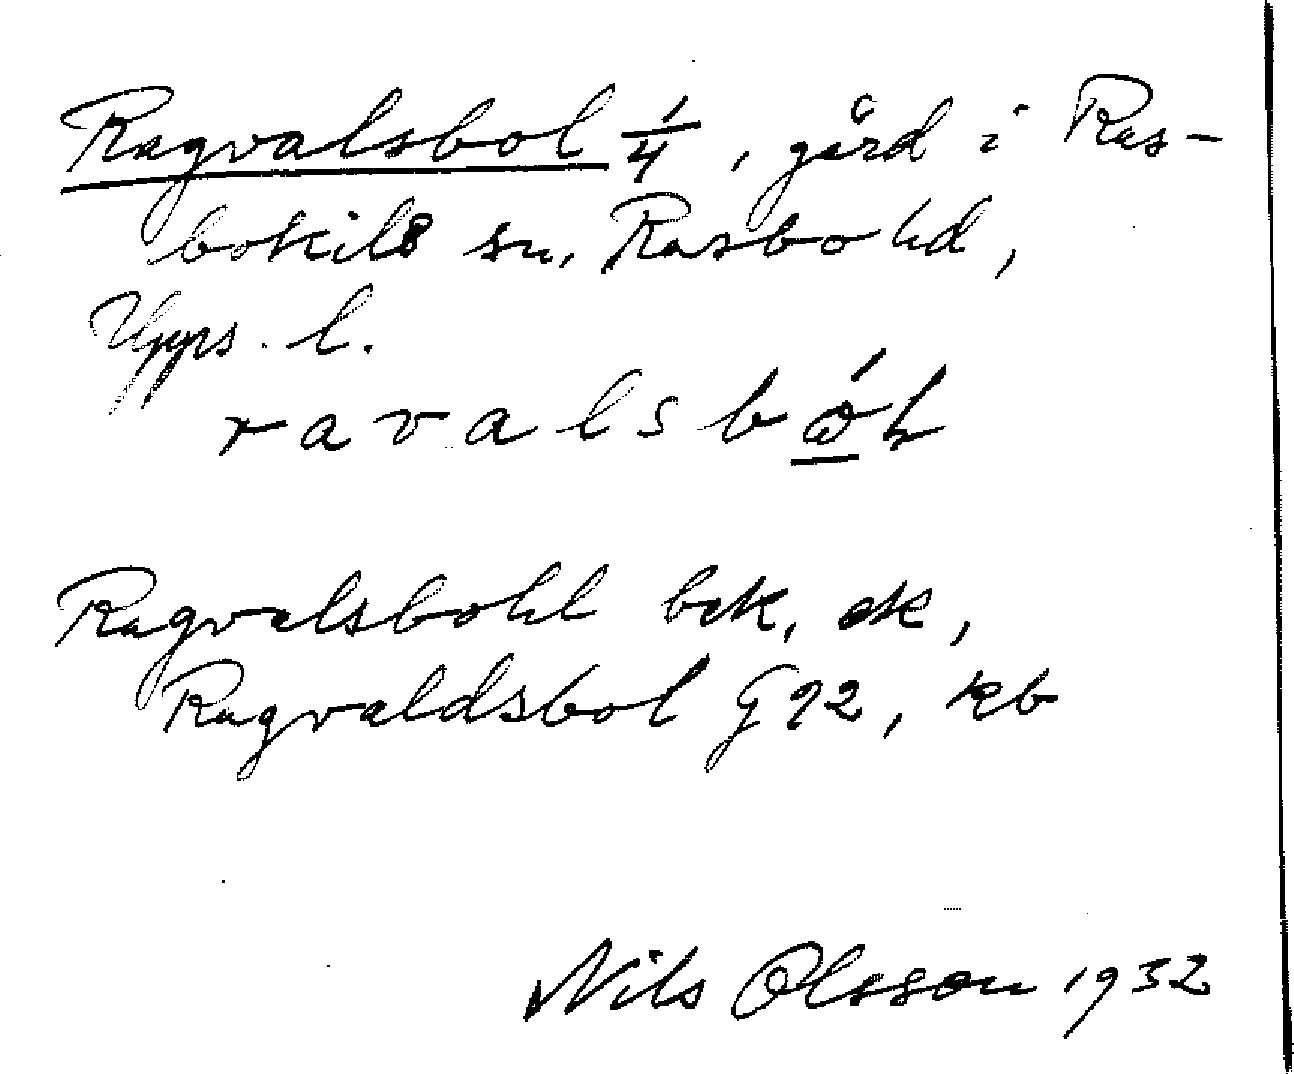 Ragvalsbol 1/4, gård i Ras-
bokils sn, Rasbo hd,
Upps. l.
ravalsbώ̲l
Ragvalsbohl bck, ek,
Ragvaldsbol G92, kb
Nils Olsson 1932